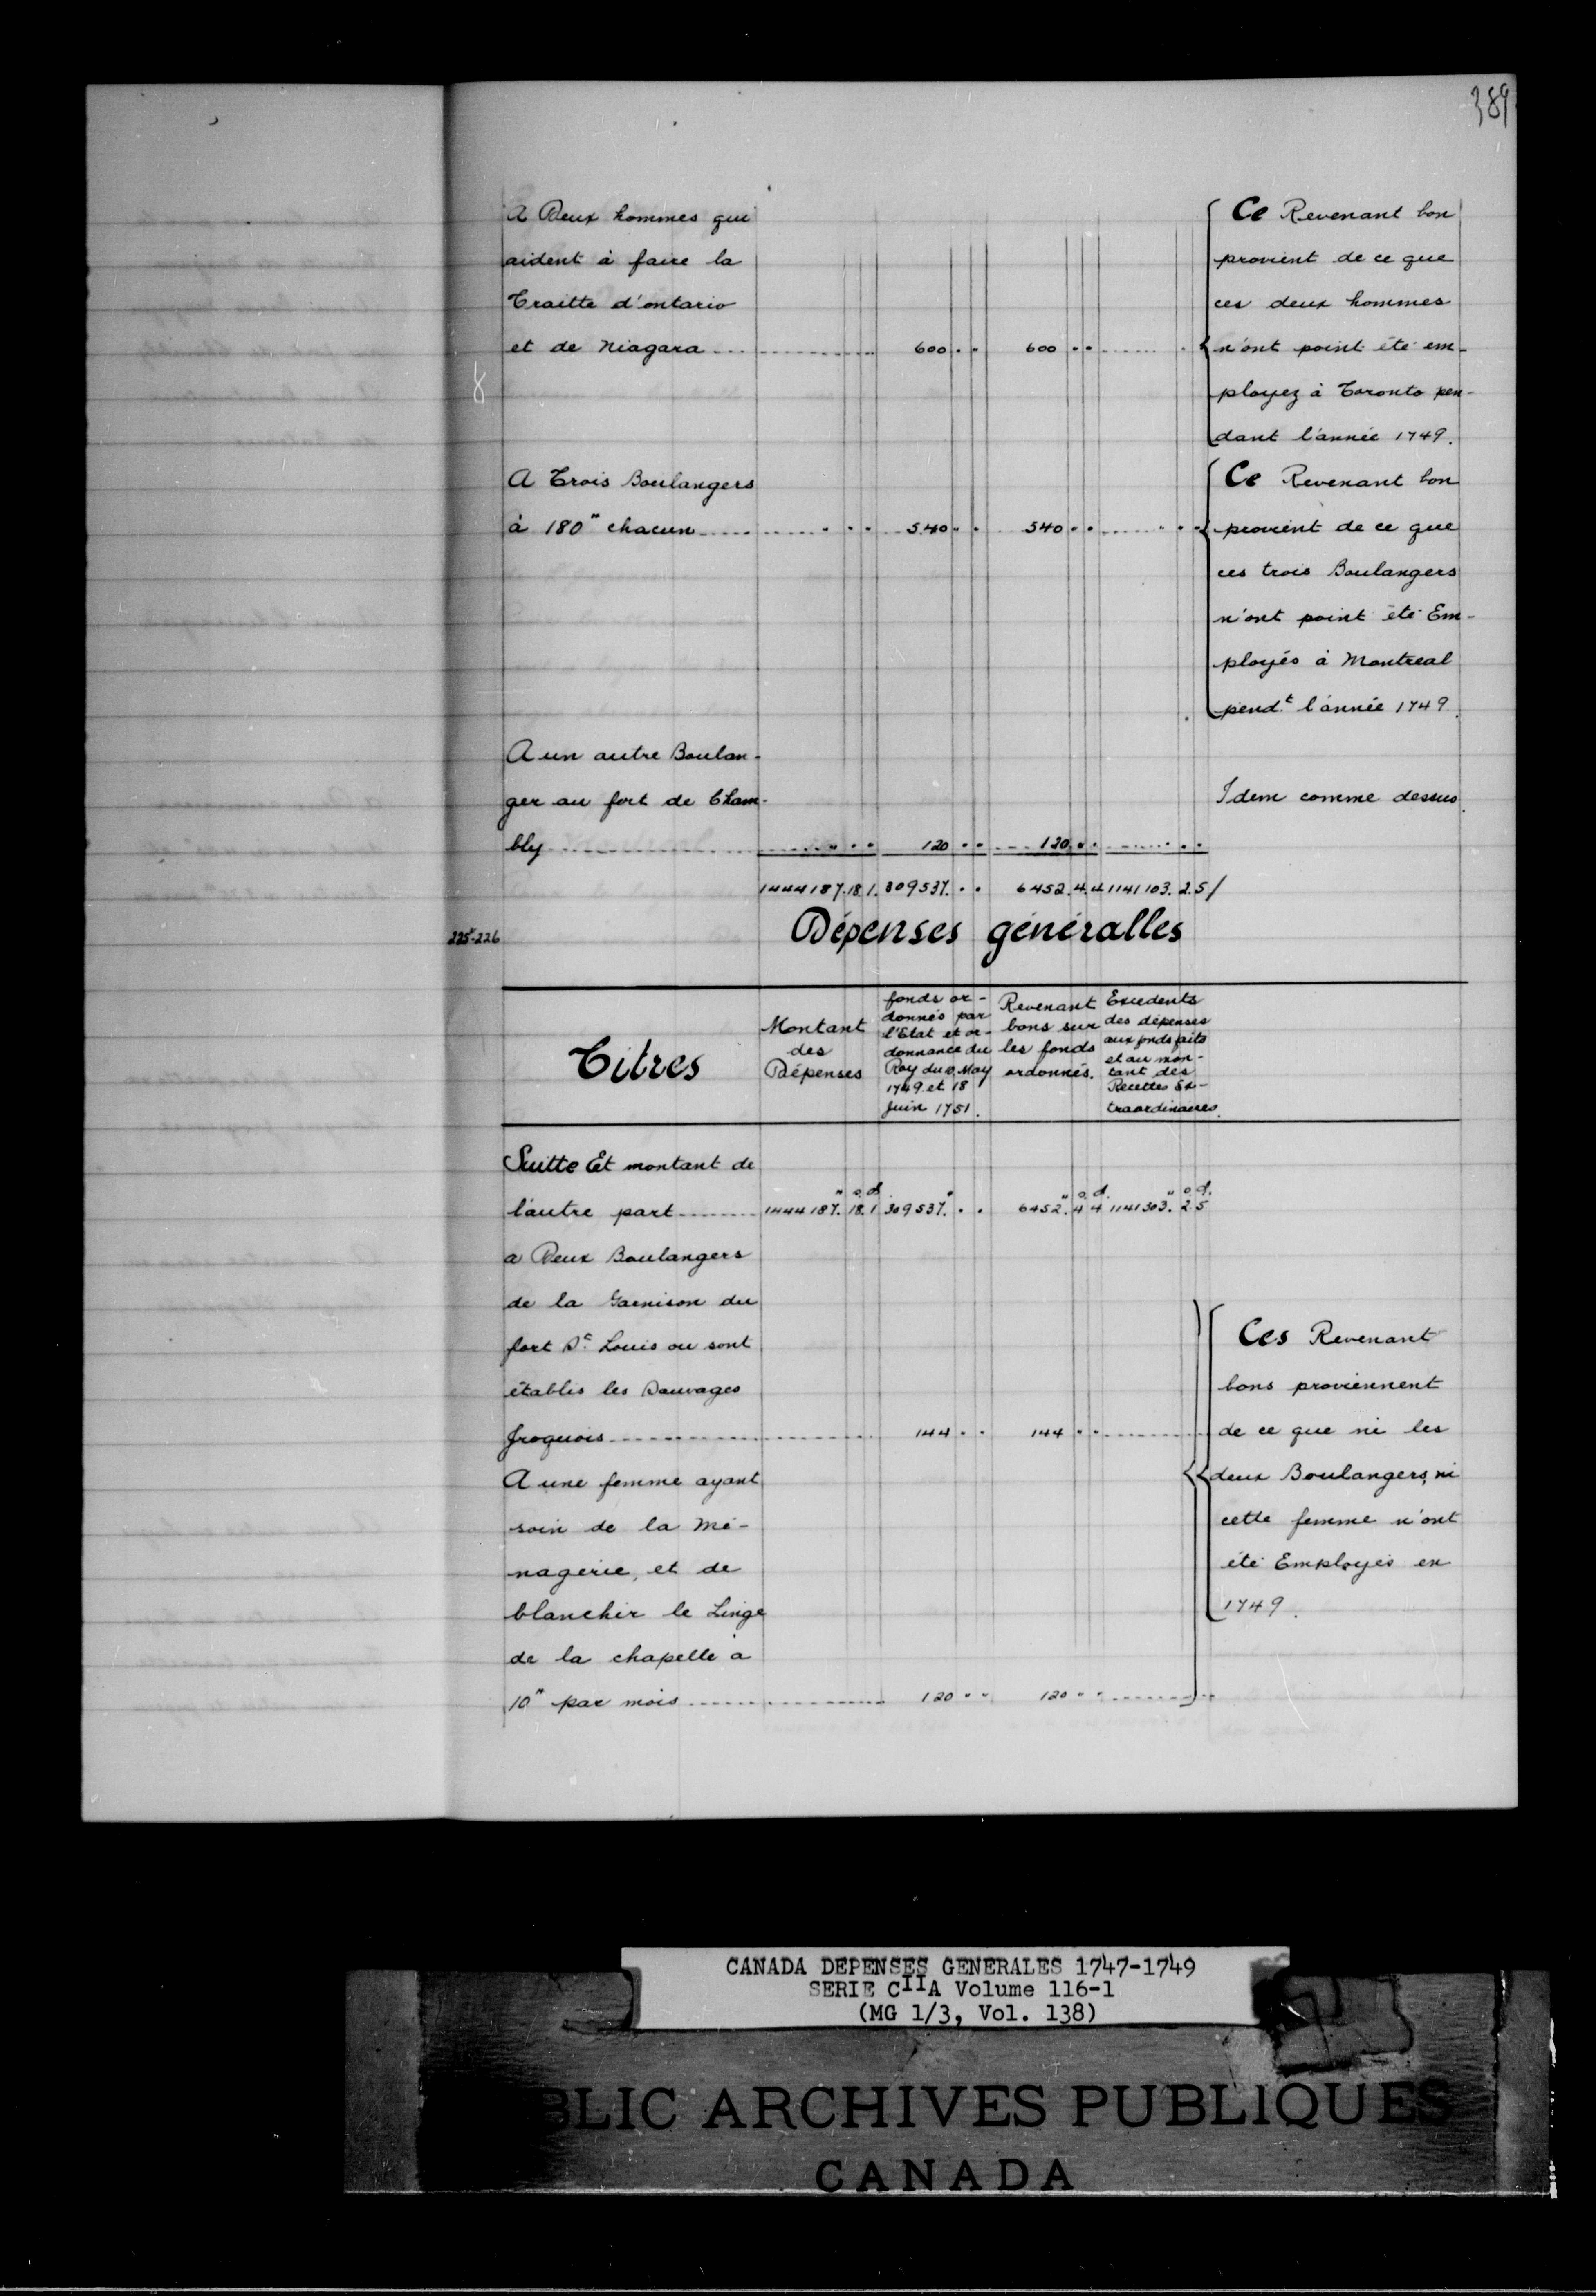 389
A Deux hommes qui
aident à faire la
Traitte d'ontario
et de Niagara ... 600 " " 600 " " ...
Ce Revenant bon
provient de ce que
ces deux hommes
n'ont point été em-
ployez à Toronto pen-
dant l'année 1749.
8
A Trois Boulangers
à 180" chacun ... " " " 540 " " 540 " " ... " " "
Ce Revenant bon
provient de ce que
ces trois Boulangers
n'ont point été Em-
ployés à Montreal
pend.t l'année 1749.
A un autre Boulan-
ger au fort de Cham-
bly ... " " " 120 " " 120 " " ... " " "
Idem comme dessus.
1444187. 18. 1. 309537. " " 6452. 4. 4 1141103. 2. 5/
225-226
Dépenses générailes
Titres
Montant
des
Dépenses
fonds or-
donnés par
l'Etat et or-
donnance du
Roy du May
1749 et 18
Juin 1751.
Revenant
bons sur
les fonds
ordonnés.
Excedents
des dépenses
aux fonds faits
et au mon-
tant des
Recettes Ex-
traordinaires.
Suitte Et montant de
l'autre part ... 1444187." 18.s 1.d 309537." " " 6452." 4.s 4.d 1141303." 2.s 5.d
a Deux Boulangers
de la Garnison du
fort St. Louis ou sont
établis les Sauvages
Iroquois ... 144 " " 144 " " ...
A une femme ayant
soin de la Mé-
nagerie, et de
blanchir le Linge
de la chapelle à
10" par mois ... 120 " " 120 " " ...
Ces Revenant
bons proviennent
de ce que ni les
deux Boulangers, ni
cette femme n'ont
été Employés en
1749.
CANADA DEPENSES GENERALES 1747-1749
SERIE CIIA Volume 116-1
(MG 1/3, Vol. 138)
BLIC ARCHIVES PUBLIQUES
CANADA